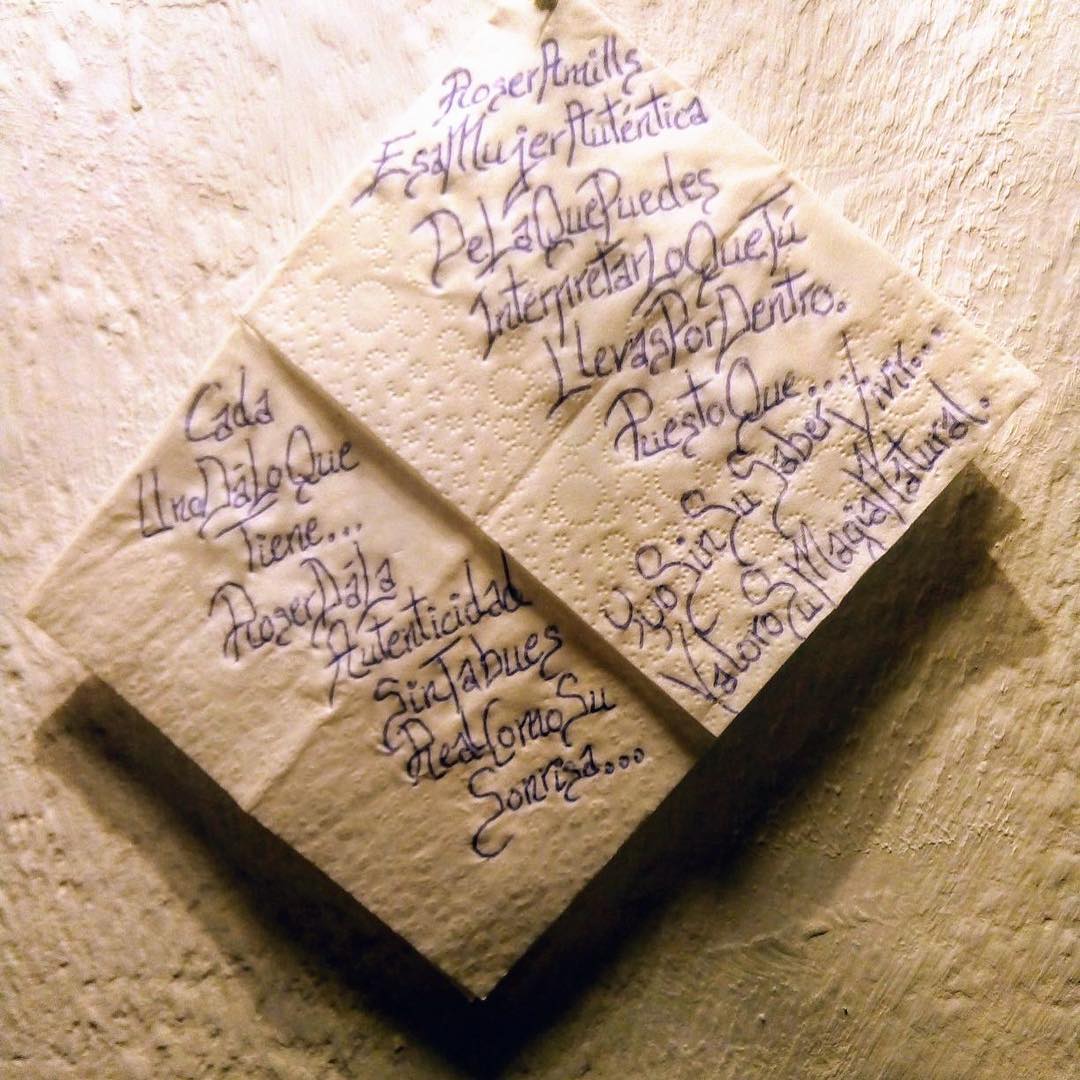 RoserAmills
EsaMujerAuténtica
DeLaQuePuedes
InterpretarLoQueTú
LlevasPorDentro.
PuestoQue...
YyoSinSuSaberVivir...
ValoroSuMagiaNatural.
Cada
UnoDáLoQue
Tiene...
RoserDáLa
Autenticidad
SinTabues
RealComoSu
Sonrisa...